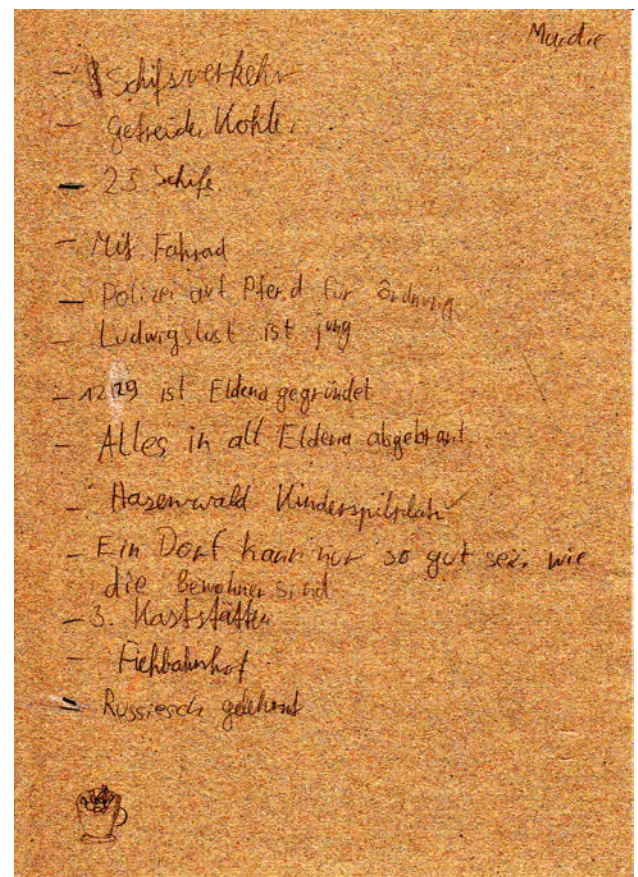 - Schifsverkehr
- Getreide, Kohle,
- 23 Schife
- Mit Fahrad
- Polizei auf Pferd für Ordnung
- Ludwigslust ist jung
- 1229 ist Eldena gegründet
- Alles in alt Eldena abgebrant
- Hasenwald Kinderspilplatz
- Ein Dorf kann nur so gut sein wie
die Bewohner sind
- 3. Kaststätten
- Fiehbahnhof
- Russiesch gelehrnt